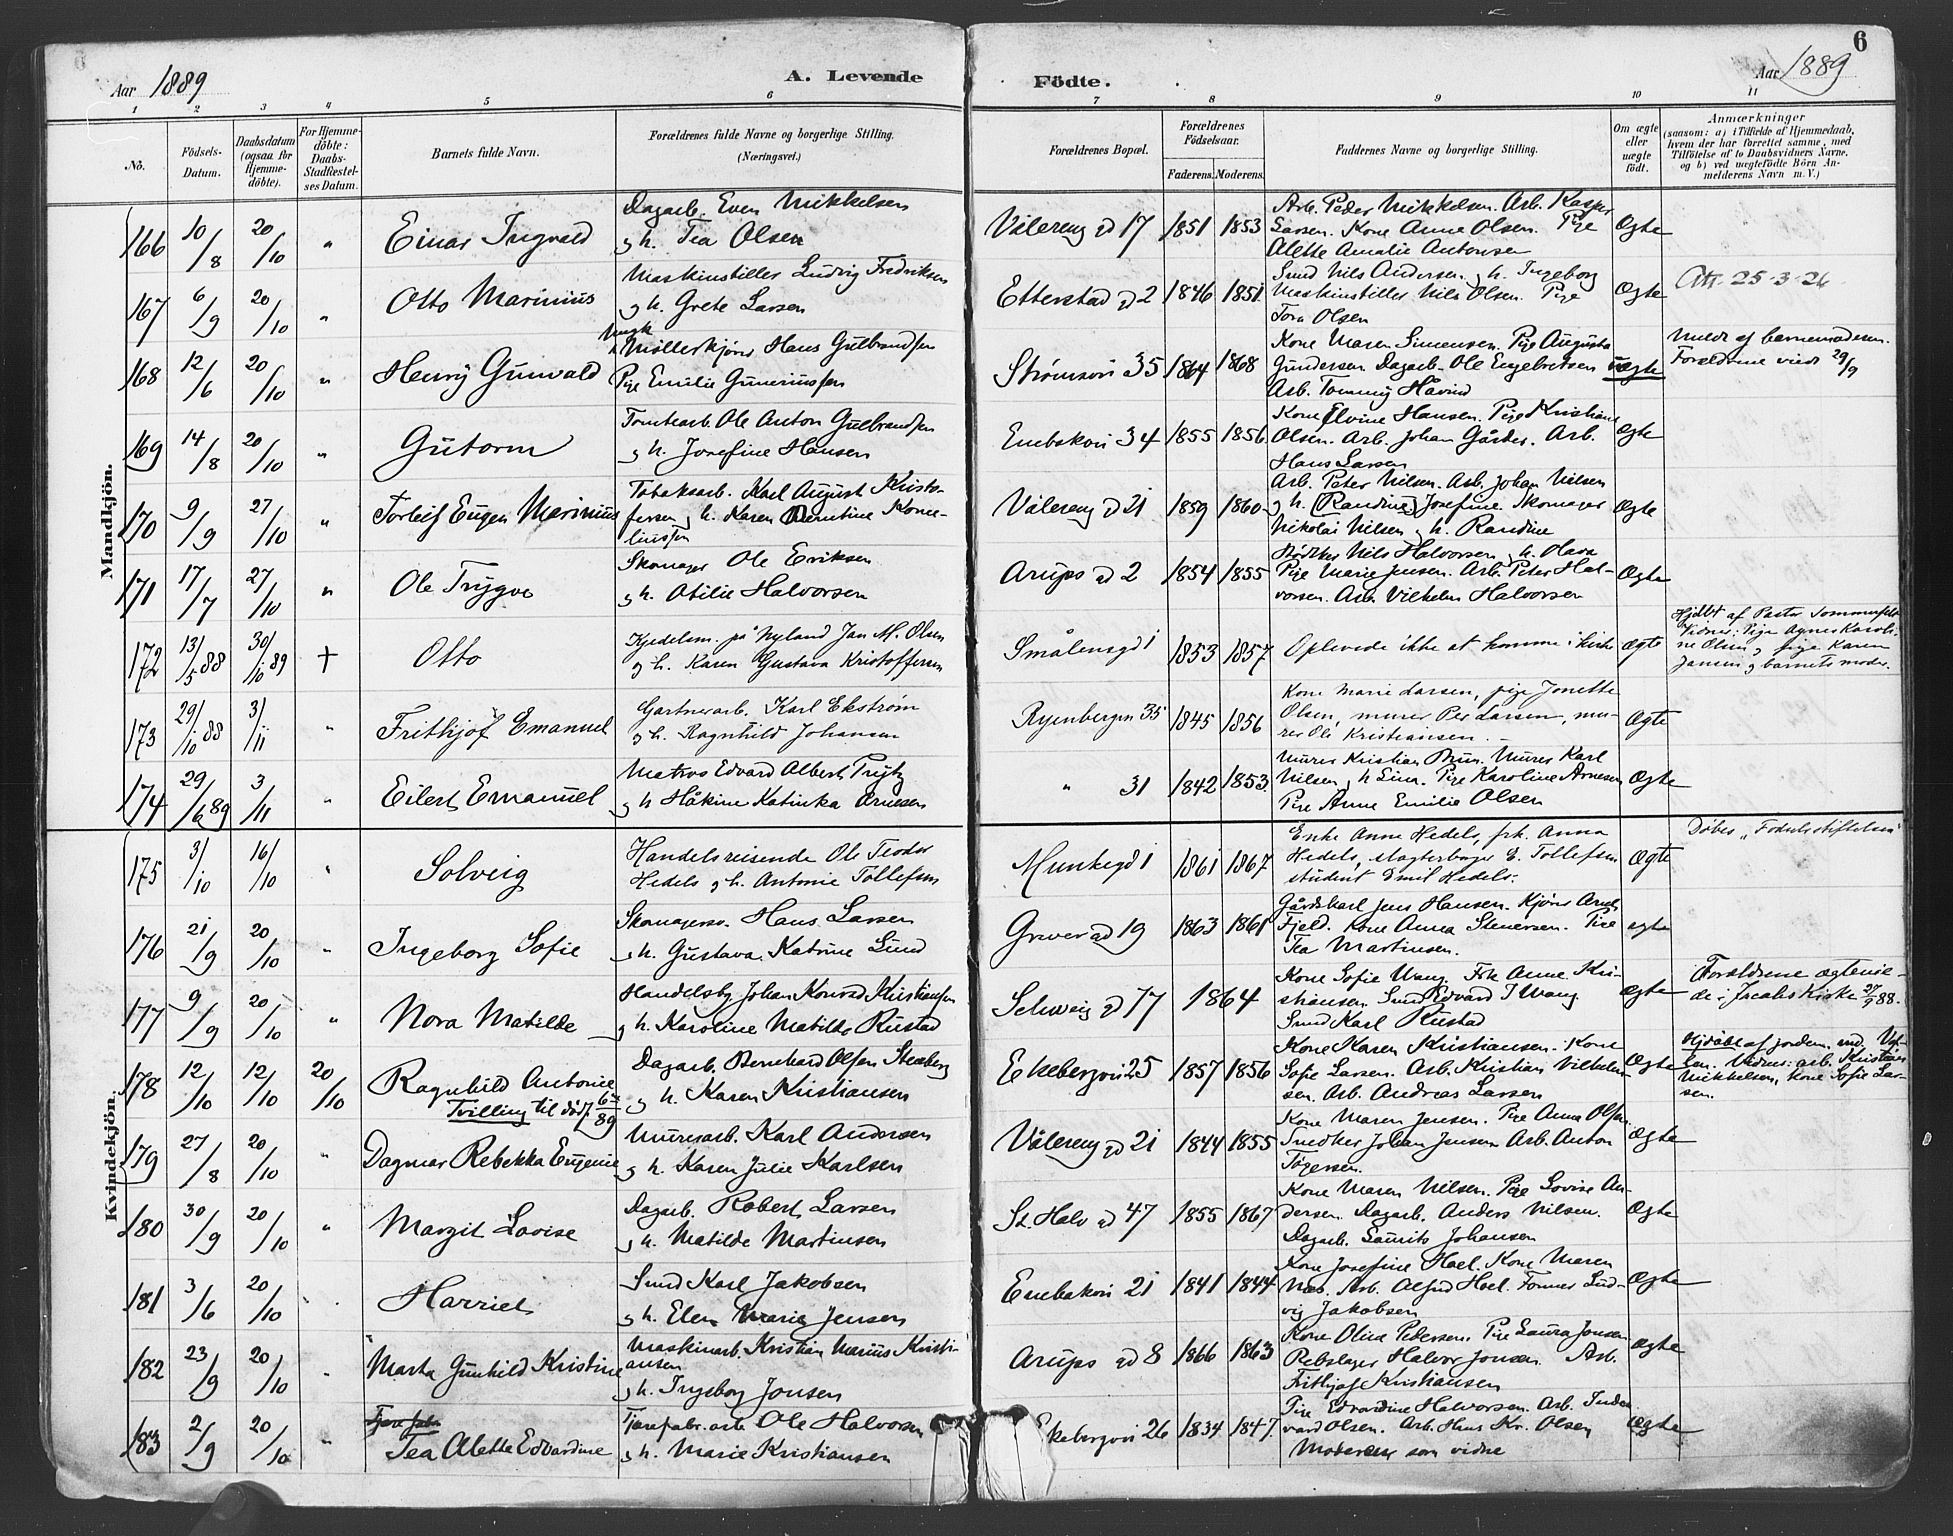 6
Aar 1889
A. Levende
Födte.
Aar 1889
1 2 3 4 5 6 7 8 9 10 11
No.
Födsels-Datum.
Daabsdatum (ogsaa for Hjemme-döbte).
For Hjemme-döbte: Daabs-Stadfæstel-ses Datum.
Barnets fulde Navn.
Forældrenes fulde Navne og borgerlige Stilling. (Næringsvei.)
Forældrenes Bopæl.
Forældrenes Födselsaar.
Faderens. Moderens.
Faddernes Navne og borgerlige Stilling.
Om ægte eller uægte födt.
Anmærkninger
(saasom: a) i Tilfælde af Hjemmedaab, hvem der har forrettet samme, med Tilföielse af to Daabsvidners Navne, og b) ved uægtefödte Börn An-melderens Navn m. V.)
Mandkjön.
166 10/8 20/10 " Einar Ingvald
Dagarb. Even Mikkelsen
og h. Tea Olsen
Vålereng gd 17 1851 1853
Arb. Peder Mikkelsen. Arb. Kasper
Larsen. Kone Anne Olsen. Pige
Alette Amalie Antonsen
Ægte
167 6/9 20/10 " Otto Marinius
Maskinstiller Ludvig Fredriksen
og h. Grete Larsen
Etterstad gd 2 1846 1851
Smed Nils Andersen og h. Ingeborg
Maskinstiller Nils Olsen. Pige
Tora Olsen
Ægte
Att. 25-3-26
168 12/6 20/10 " Henry Gunvald
Ungk.
Møllerkjører Hans Gulbrandsen
Pige Emilie Guneriussen
Strømsvei 35 1864 1868
Kone Maren Simensen. Pige Augusta
Gundersen Dagarb. Ole Engebretsen
Arb. Tommy Håvind
uægte
Meldt af barnemoderen.
Forældrene viede 29/9
169 14/8 20/10 " Gutorm
Tomtearb. Ole Anton Gulbrandsen
og h. Josefine Hansen
Enebakvei 34 1855 1856
Kone Elvine Hansen. Pige Kristiane
Olsen. Arb. Johan Gårder. Arb.
Hans Larsen
Ægte
170 9/9 27/10 " Torleif Eugen Marinius
Tobaksarb. Karl August Kristo-
fersen og h. Karen Berntine Korne-
liussen
Vålereng gd 21 1859 1860
Arb. Peter Nilsen. Arb. Johan Nilsen
og h. (Randine) Josefine. Skomager
Nikolai Nilsen og h. Randine
Ægte
171 17/7 27/10 " Ole Trygve
Skomager Ole Eriksen
og h. Otilie Halvorsen
Arups gd 2 1854 1855
Bødker Nils Halvorsen og h. Olava
Pige Marie Jensen. Arb. Peter Hal-
vorsen. Arb. Vilhelm Halvorsen
Ægte
172 13/5 88 30/10 89 + Otto
Kjedelsm. på Nyland Jan M. Olsen
og h. Karen Gustava Kristoffersen
Smålensgd 1 1853 1857
Oplevede ikke at komme i kirke
ægte
Hjdbt af Pastor Sommerfelt
Vidner: Pige Agnes Karoli-
ne Olsen og pige Karen
Jansen og barnets moder.
173 29/10 88 3/11 " Frithjof Emanuel
Gartnerarb. Karl Ekstrøm
og h. Ragnhild Johansen
Ryenbergvn 35 1845 1856
Kone Marie Larsen, pige Jonette
Olsen, murer Per Larsen, mu-
rer Ole Kristiansen.
Ægte
174 29/6 89 3/11 " Eilert Emanuel
Matros Edvard Albert Trytz
og h Håkine Katinka Arnesen
" 31 1842 1853
Murer Kristian Brun. Murer Karl
Nilsen og h Lina. Pige Karoline Arnesen
Pige Anne Emilie Olsen
Ægte
Kvindekjön.
175 3/10 16/10 " Solveig
Handelsreisende Ole Teodor
Hedels og h. Antonie Tollefsen
Munkegd 1 1861 1867
Enke Anne Hedels, frk. Anna
Hedels, slagterborger E. Tollefsen
student Emil Hedels.
Ægte
Døbes "Fødselsstiftelsen"
176 21/9 20/10 " Ingeborg Sofie
Skomagersv. Hans Larsen
og h. Gustava Katrine Lund
Grøver gd 19 1863 1861
Gårdskarl Jens Hansen. Kjører Arnt
Fjeld. Kone Anna Stenersen. Pige
Tea Martinsen.
egte
177 9/9 20/10 " Nora Matilde
Handelsbg Johan Konrad Kristiansen
og h. Karoline Matilde Rustad
Schweig gd 17 1864
Kone Sofie Wang. Frk Anne Kri-
stiansen Smed Edvard J Wang
Smed Karl Rustad
Ægte
Forældrene ægtevie-
de i Jacobs Kirke 27/9 88.
178 12/10 12/10 20/10 Ragnhild Antonie
Tvilling til dødf. 6/89
Dagarb. Bernhard Olsen Stenberg
og h. Karen Kristiansen
Ekebergvei 25 1857 1856
Kone Karen Kristiansen. Kone
Sofie Larsen. Arb. Kristian Vilhelm-
sen. Arb. Andreas Larsen
Ægte
Hjdøbt af jordem. md.
Vidner: arb. Kristian
Mikkelsen, kone Sofie Lar-
sen.
179 27/8 20/10 " Dagmar Rebekka Eugenie
Murerarb. Karl Andersen
og h. Karen Julie Karlsen
Vålereng gd 21 1844 1855
Kone Maren Jensen. Pige Anna Olsen.
Snedker Johan Jensen Arb. Anton
Tøgersen.
Ægte
180 30/9 20/10 " Margit Lovise
Dagarb. Robert Larsen
og h. Matilde Martinsen
St. Halv gd 47 1855 1867
Kone Maren Nilsen. Pige Lovise An-
dersen. Dagarb. Anders Nilsen.
Dagarb. Laurits Johansen
Ægte
181 3/6 20/10 " Harriet
Smed Karl Jakobsen
og h. Elen Marie Jensen
Enebakvei 21 1841 1844
Kone Josefine Hoel. Kone Maren
Næs. Arb. Alfred Hoel. Former Lud-
vig Jakobsen
Ægte
182 23/9 20/10 " Marta Gunhild Kristine
Maskinarb. Kristian Marius Kristi-
ansen
og h. Ingeborg Jonsen
Arups gd 8 1866 1863
Kone Olina Pedersen. Pige Laura Jonsen
Rebslager Halvor Jonsen. Arb.
Frithjof Kristiansen
Ægte
183 2/9 20/10 " Tea Alette Edvardine
Tjærefabr. arb Ole Halvorsen
og h. Marie Kristiansen
Ekebergvei 26 1834 1847
Pige Edvardine Halvorsen. Arb.
Olsen. Arb. Hans Kr. Olsen
Moderen som vidne
Ægte